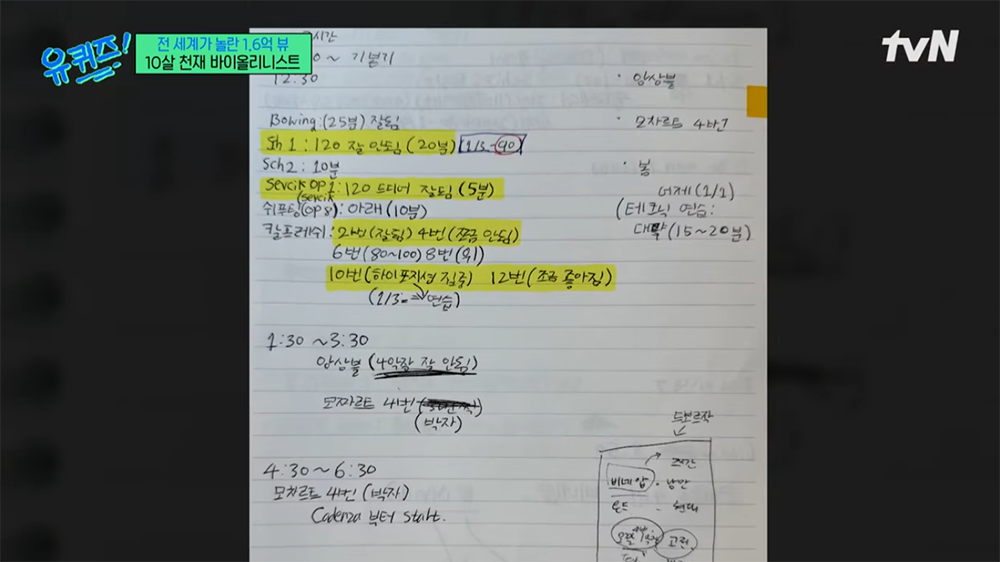 유퀴즈!
전 세계가 놀란 1.6억 뷰
10살 천재 바이올리니스트
tvN
시간
~ 기본기
12:30
Bowing:(25분) 잘됨
Sch 1 : 120 잘 안됨 (20분) 1/3-90
Sch 2 : 10분
Sevcik OP 1 : 120 드디어 잘됨 (5분)
(sevcik
쉬프팅(OP 8) : 아래 (10분)
돈트: 2번(잘됨) 4번(쪼금 안됨)
6번(80~100) 8번(위)
10번(하이포지션 집중) 12번(조금 좋아짐)
(1/3 연습)
1:30 ~3:30
앙상블 (4악장 잘 안됨)
모짜르트 4번
(박자)
4:30~6:30
모차르트 4번 (박자)
Cadenza 부터 start.
· 앙상블
· 모차르트 4번
· 봄
어제 (1/1)
(테크닉 연습:
대략 (15~20분)
드보르작
비네압 · 낭만
· 현대
고전